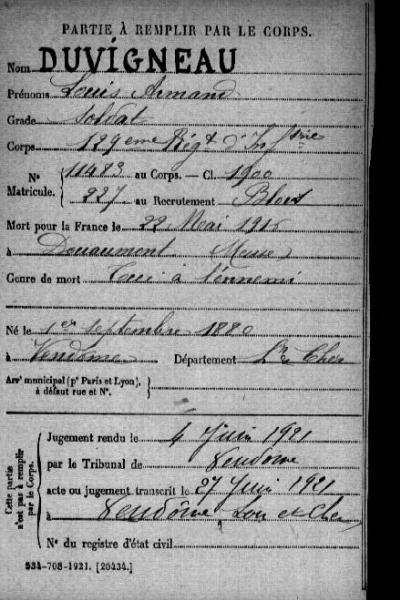 PARTIE À REMPLIR PAR LE CORPS.
Nom DUVIGNEAU
Prénoms Louis Armand
Grade Soldat
Corps 129eme Régt d'Inftrie
N° Matricule. 11483 au Corps. — Cl. 1900
227 au Recrutement Blois
Mort pour la France le 22 Mai 1916
à Douaumont Meuse
Genre de mort Tué à l'ennemi
Né le 1er Septembre 1880
à Vendôme Département Lr & Cher
Arrt municipal (pr Paris et Lyon), à défaut rue et N°.
Cette partie n'est pas à remplir par le Corps.
Jugement rendu le 4 Juin 1921
par le Tribunal de Vendôme
acte ou jugement transcrit le 27 Juin 1921
à Vendôme Loir et Cher
N° du registre d'état civil
534-708-1921. [26434.]